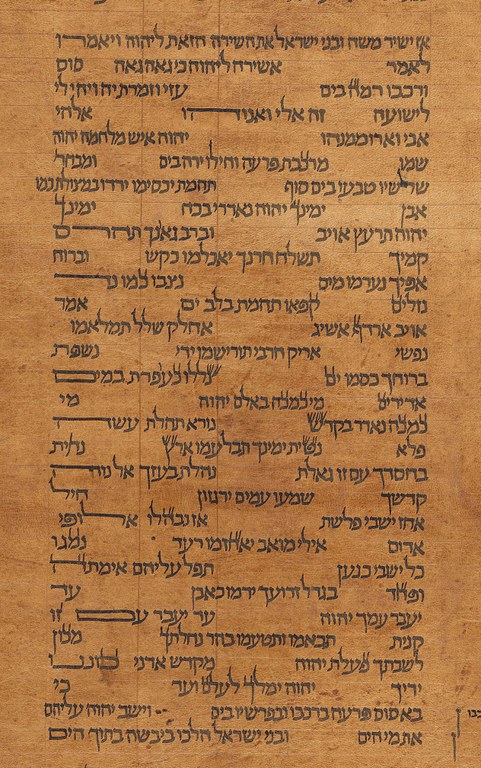 אז ישיר משה ובני ישראל את השירה הזאת ליהוה ויאמרו
לאמר אשירה ליהוה כי גאה גאה סוס
ורכבו רמה בים עזי וזמרת יה ויהי לי
לישועה זה אלי ואנוהו אלהי
אבי וארוממנהו יהוה איש מלחמה יהוה
שמו מרכבת פרעה וחילו ירה בים ומבחר
שלשיו טבעו בים סוף תהמת יכסימו ירדו במצולת כמו
אבן ימינך יהוה נאדרי בכח ימינך
יהוה תרעץ אויב וברב גאונך תהרס
קמיך תשלח חרנך יאכלמו כקש וברוח
אפיך נערמו מים נצבו כמו נד
נזלים קפאו תהמת בלב ים אמר
אויב ארדף אשיג אחלק שלל תמלאמו
נפשי אריק חרבי תורישמו ידי נשפת
ברוחך כסמו ים צללו כעפרת במים
אדירים מי כמכה באלם יהוה מי
כמכה נאדר בקדש נורא תהלת עשה
פלא נטית ימינך תבלעמו ארץ נחית
בחסדך עם זו גאלת נהלת בעזך אל נוה
קדשך שמעו עמים ירגזון חיל
אחז ישבי פלשת אז נבהלו אלופי
אדום אילי מואב יאחזמו רעד נמגו
כל ישבי כנען תפל עליהם אימתה
ופחד בגדל זרועך ידמו כאבן עד
יעבר עמך יהוה עד יעבר עם זו
קנית תבאמו ותטעמו בהר נחלתך מכון
לשבתך פעלת יהוה מקדש אדני כוננו
ידיך יהוה ימלך לעלם ועד כי
בא סוס פרעה ברכבו ובפרשיו בים וישב יהוה עליהם
את מי הים ובני ישראל הלכו ביבשה בתוך הים